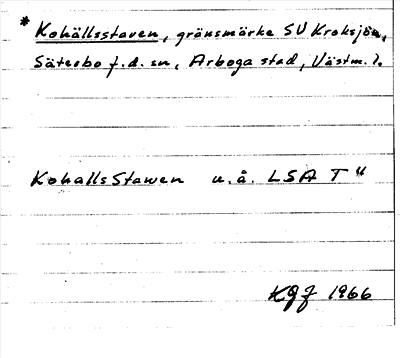 * Kohällsstaven, gränsmärke SV Kroksjön,
Säterbo f.d. sn, Arboga stad, Västm. l.
KohallsStawen u.å. LSA T 4
KGF 1966